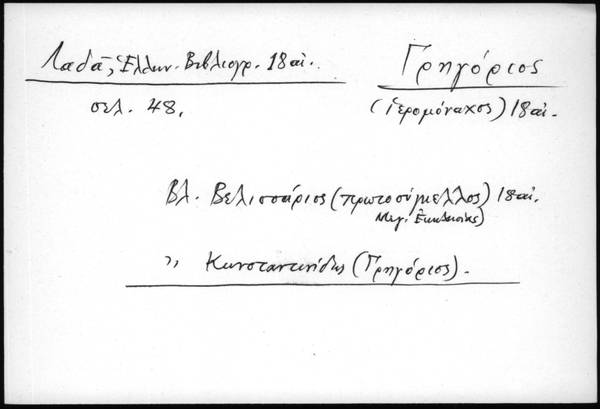 Λαδᾶ, Ἑλλην. Βιβλιογρ. 18 αἰ.
σελ. 48.
Γρηγόριος
(ἱερομόναχος) 18 αἰ.
Βλ. Βελισσάριος (πρωτοσύγκελλος) 18 αἰ.
Μεγ. Ἐκκλησίας)
" Κωνσταντινίδης (Γρηγόριος).